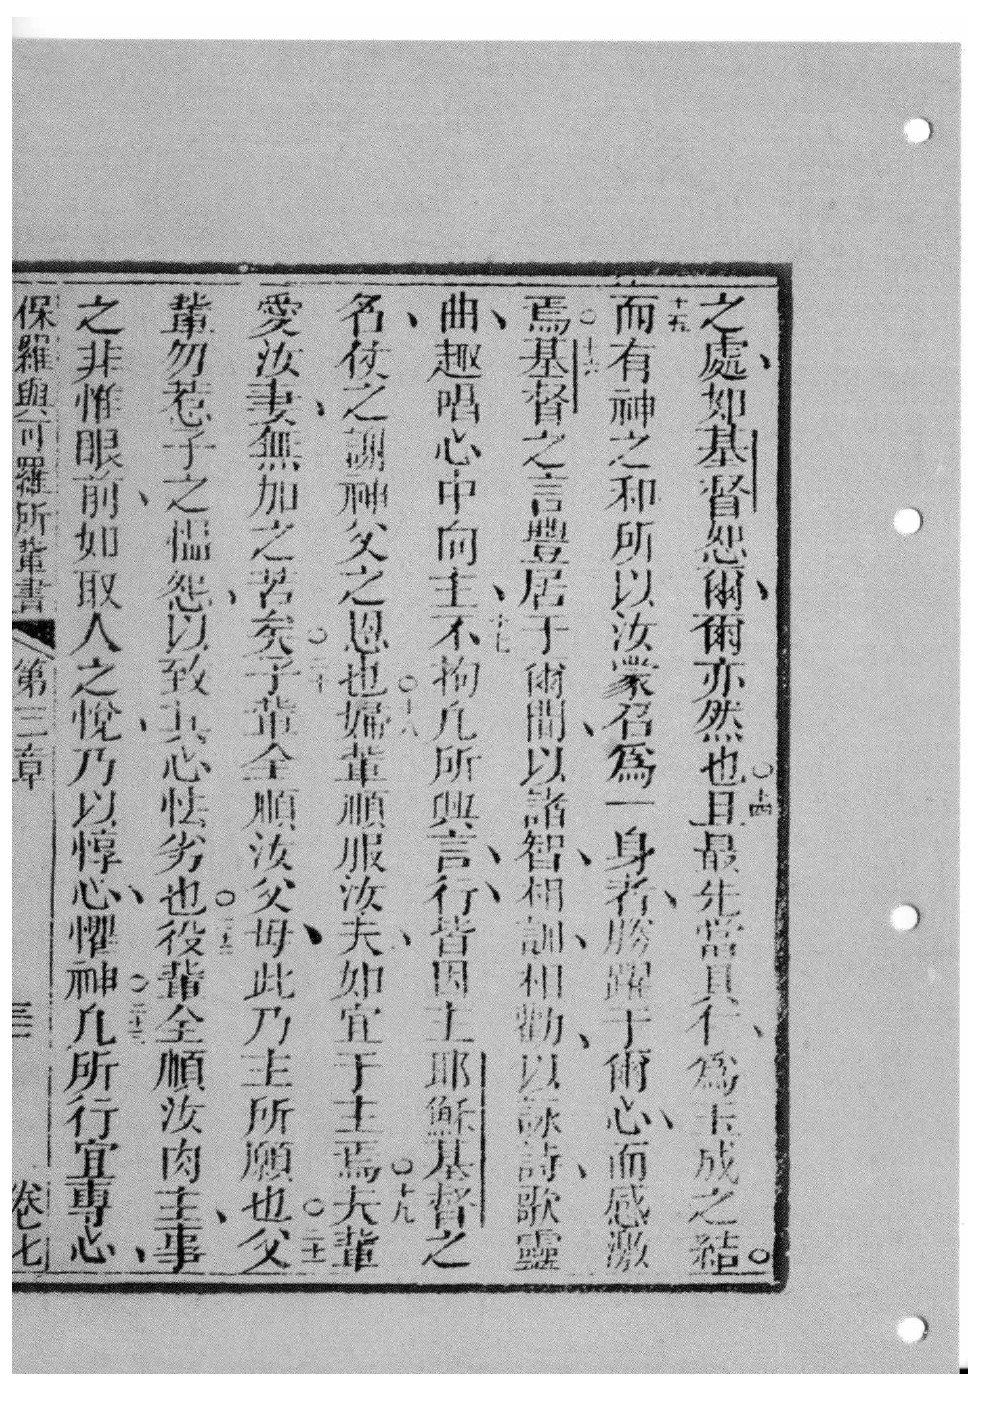 之處、如基督恕爾、爾亦然也。○十四且最先當具仁、爲玉成之結。
十五而有神之和所以汝蒙召爲一身者、勝躍于爾心、而感激
焉。○十六基督之言豐居于爾間、以諸智、相訓、相勸、以詠詩、歌靈
曲、趣唱心中向主、十七不拘凡所與言、行、皆因主耶穌基督之
名、仗之謝神父之恩也。○十八婦輩順服汝夫、如宜于主焉。○十九夫輩
愛汝妻、無加之苦矣。○二十子輩全順汝父母、此乃主所願也。○二十一父
輩勿惹子之慍怨、以致其心怯劣也。○二十二役輩全順汝肉主、事
之非惟眼前、如取人之悅、乃以惇心、懼神。○二十三凡所行宜專心、
保羅與可羅所輩書 第三章 三 卷七